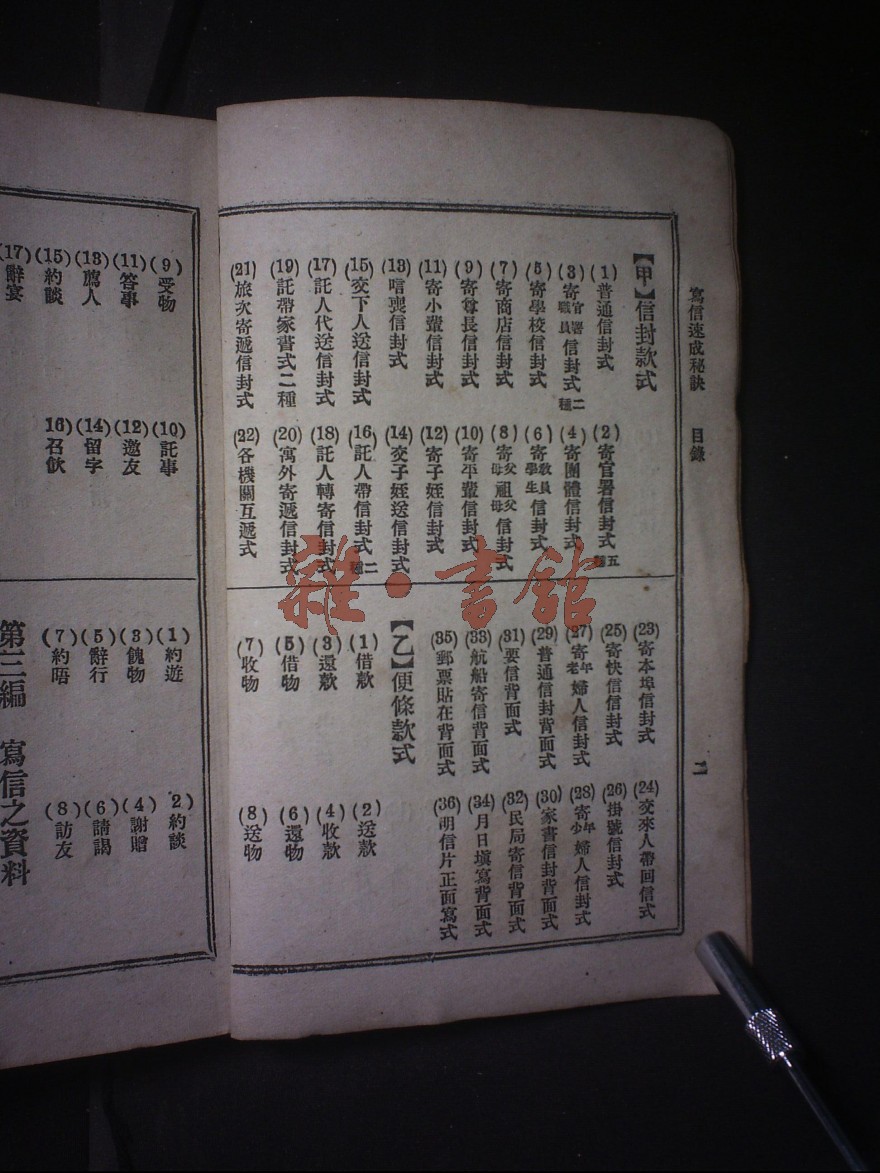 寫信速成秘訣 目錄 二
【甲】信封款式
(1)普通信封式 (2)寄官署信封式五種
(3)寄官署職員信封式二種 (4)寄團體信封式
(5)寄學校信封式 (6)寄教員學生信封式
(7)寄商店信封式 (8)寄父母祖父母信封式
(9)寄尊長信封式 (10)寄平輩信封式
(11)寄小輩信封式 (12)寄子姪信封式
(13)唁喪信封式 (14)交子姪送信封式
(15)交下人送信封式 (16)託人帶信封式二種
(17)託人代送信封式 (18)託人轉寄信封式
(19)託帶家書式二種 (20)寓外寄遞信封式
(21)旅次寄遞信封式 (22)各機關互遞式
(23)寄本埠信封式 (24)交來人帶回信式
(25)寄快信信封式 (26)掛號信封式
(27)寄老年婦人信封式 (28)寄少年婦人信封式
(29)普通信封背面式 (30)家書信封背面式
(31)要信背面式 (32)民局寄信背面式
(33)航船寄信背面式 (34)月日填寫背面式
(35)郵票貼在背面式 (36)明信片正面寫式
【乙】便條款式
(1)借款 (2)送款
(3)還款 (4)收款
(5)借物 (6)還物
(7)收物 (8)送物
(9)受物 (10)託事
(11)答事 (12)邀友
(13)薦人 (14)留字
(15)約談 16)召飲
(17)辭宴
(1)約遊 2)約談
(3)餽物 (4)謝贈
(5)辭行 (6)請謁
(7)約晤 (8)訪友
第三編 寫信之資料
雜·書館